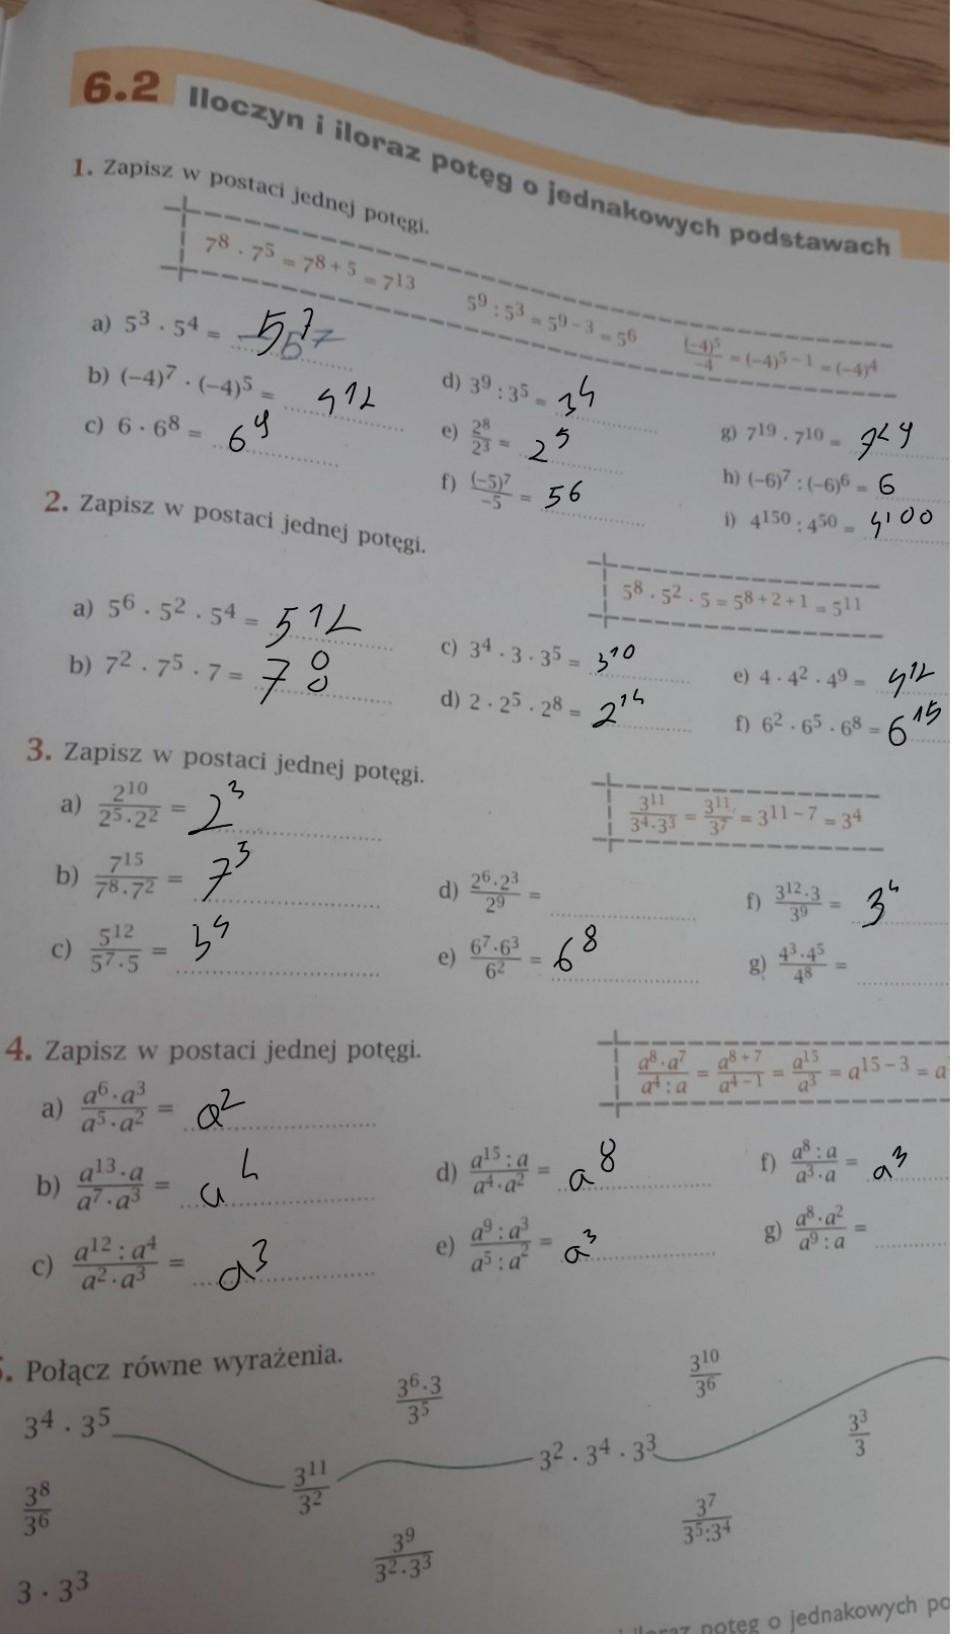 6.2 Iloczyn i iloraz potęg o jednakowych podstawach
1. Zapisz w postaci jednej potęgi.
7⁸ · 7⁵ = 7⁸⁺⁵ = 7¹³ 5⁹ : 5³ = 5⁹⁻³ = 5⁶ (−4)⁵/−4 = (−4)⁵⁻¹ = (−4)⁴
a) 5³ · 5⁴ = 5⁷
b) (−4)⁷ · (−4)⁵ = 4¹²
c) 6 · 6⁸ = 6⁹
d) 3⁹ : 3⁵ = 3⁴
e) 2⁸/2³ = 2⁵
f) (−5)⁷/−5 = 5⁶
g) 7¹⁹ · 7¹⁰ = 7²⁹
h) (−6)⁷ : (−6)⁶ = 6
i) 4¹⁵⁰ : 4⁵⁰ = 4¹⁰⁰
2. Zapisz w postaci jednej potęgi.
5⁸ · 5² · 5 = 5⁸⁺²⁺¹ = 5¹¹
a) 5⁶ · 5² · 5⁴ = 5¹²
b) 7² · 7⁵ · 7 = 7⁸
c) 3⁴ · 3 · 3⁵ = 3¹⁰
d) 2 · 2⁵ · 2⁸ = 2¹⁴
e) 4 · 4² · 4⁹ = 4¹²
f) 6² · 6⁵ · 6⁸ = 6¹⁵
3. Zapisz w postaci jednej potęgi.
3¹¹/3⁴·3³ = 3¹¹/3⁷ = 3¹¹⁻⁷ = 3⁴
a) 2¹⁰/2⁵·2² = 2³
b) 7¹⁵/7⁸·7² = 7⁵
c) 5¹²/5⁷·5 = 5⁴
d) 2⁶·2³/2⁹ =
e) 6⁷·6³/6² = 6⁸
f) 3¹²·3/3⁹ = 3⁴
g) 4³·4⁵/4⁸ =
4. Zapisz w postaci jednej potęgi.
a⁸·a⁷/a⁴:a = a⁸⁺⁷/a⁴⁻¹ = a¹⁵/a³ = a¹⁵⁻³ = a
a) a⁶·a³/a⁵·a² = a²
b) a¹³·a/a⁷·a³ = a⁴
c) a¹²:a⁴/a²·a³ = a³
d) a¹⁵:a/a⁴·a² = a⁸
e) a⁹:a³/a⁵:a² = a³
f) a⁸:a/a³·a = a³
g) a⁸·a²/a⁹:a =
5. Połącz równe wyrażenia.
3⁴ · 3⁵
3⁶·3/3⁵
3¹⁰/3⁶
3⁸/3⁶
3¹¹/3²
3² · 3⁴ · 3³
3³/3
3 · 3³
3⁹/3²·3³
3⁷/3⁵:3⁴
iloraz potęg o jednakowych po